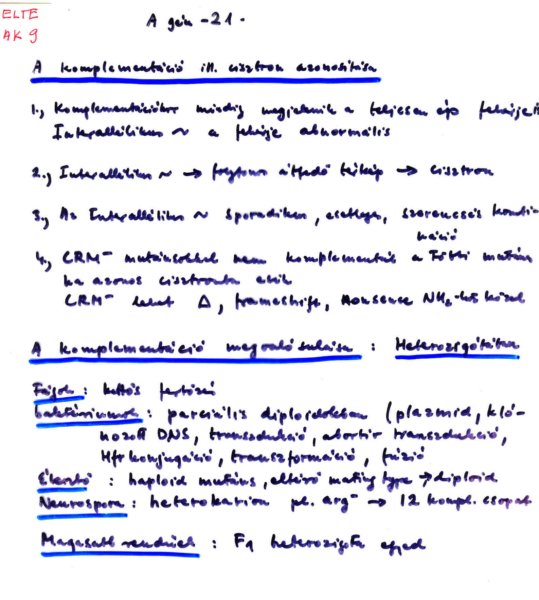 ELTE
AK 9
A gén -21-
A komplementáció ill. cisztron azonosítása
1., Komplementációkor mindig megjelenik a teljesen ép fehérje
Interallélikus ~ a fehérje abnormális
2., Interallélikus ~ → folytonos átfedő térkép → cisztron
3., Az Interallélikus ~ sporadikus, esetleges, szerencsés kombi-
náció
4., CRM⁻ mutánsokkal nem komplementál a többi mutáns
ha azonos cisztronba esik
CRM⁻ lehet Δ, frameshift, nonsense NH₂-hez közel
A komplementáció megvalósulása : Heterozigótában
Fágok : kettős fertőzés
baktériumok : parciális diploidokban (plazmid, kló-
nozott DNS, transzdukció, abortív transzdukció,
Hfr konjugáció, transzformáció, fúzió
Élesztő : haploid mutáns, eltérő mating type → diploid
Neurospora : heterokarion pl. arg⁻ → 12 kompl. csoport
Magasabb rendűek : F₁ heterozigóta egyed